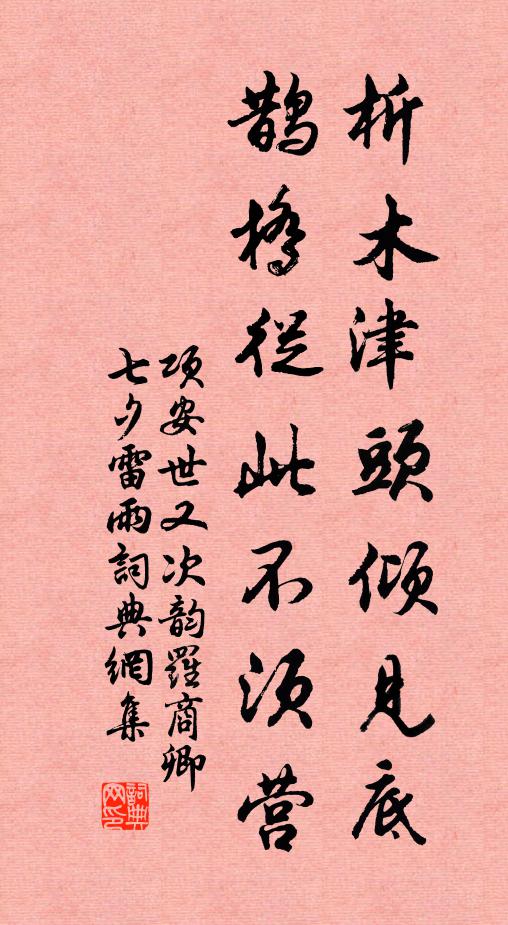 析木津頭傾見底
鹊橋從此不須营
項安世又次韵羅商卿
七夕雷雨詞典網集
詞典網印